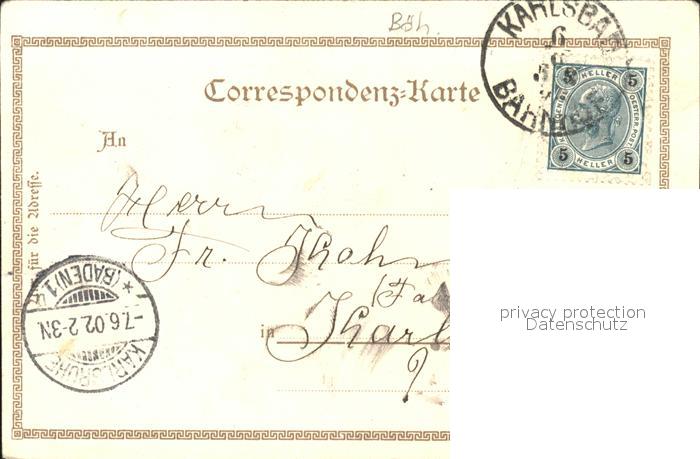 Böh.
KARLSBAD
6
BAHNHOF
5 HELLER 5
OESTERR. POST.
5 HELLER 5
Correspondenz-Karte
An
für die Adresse.
Herrn
Fr.
in Karl
privacy protection
Datenschutz
* (BADEN) 1 *
-7.6.02.2-3N.
KARLSRUHE